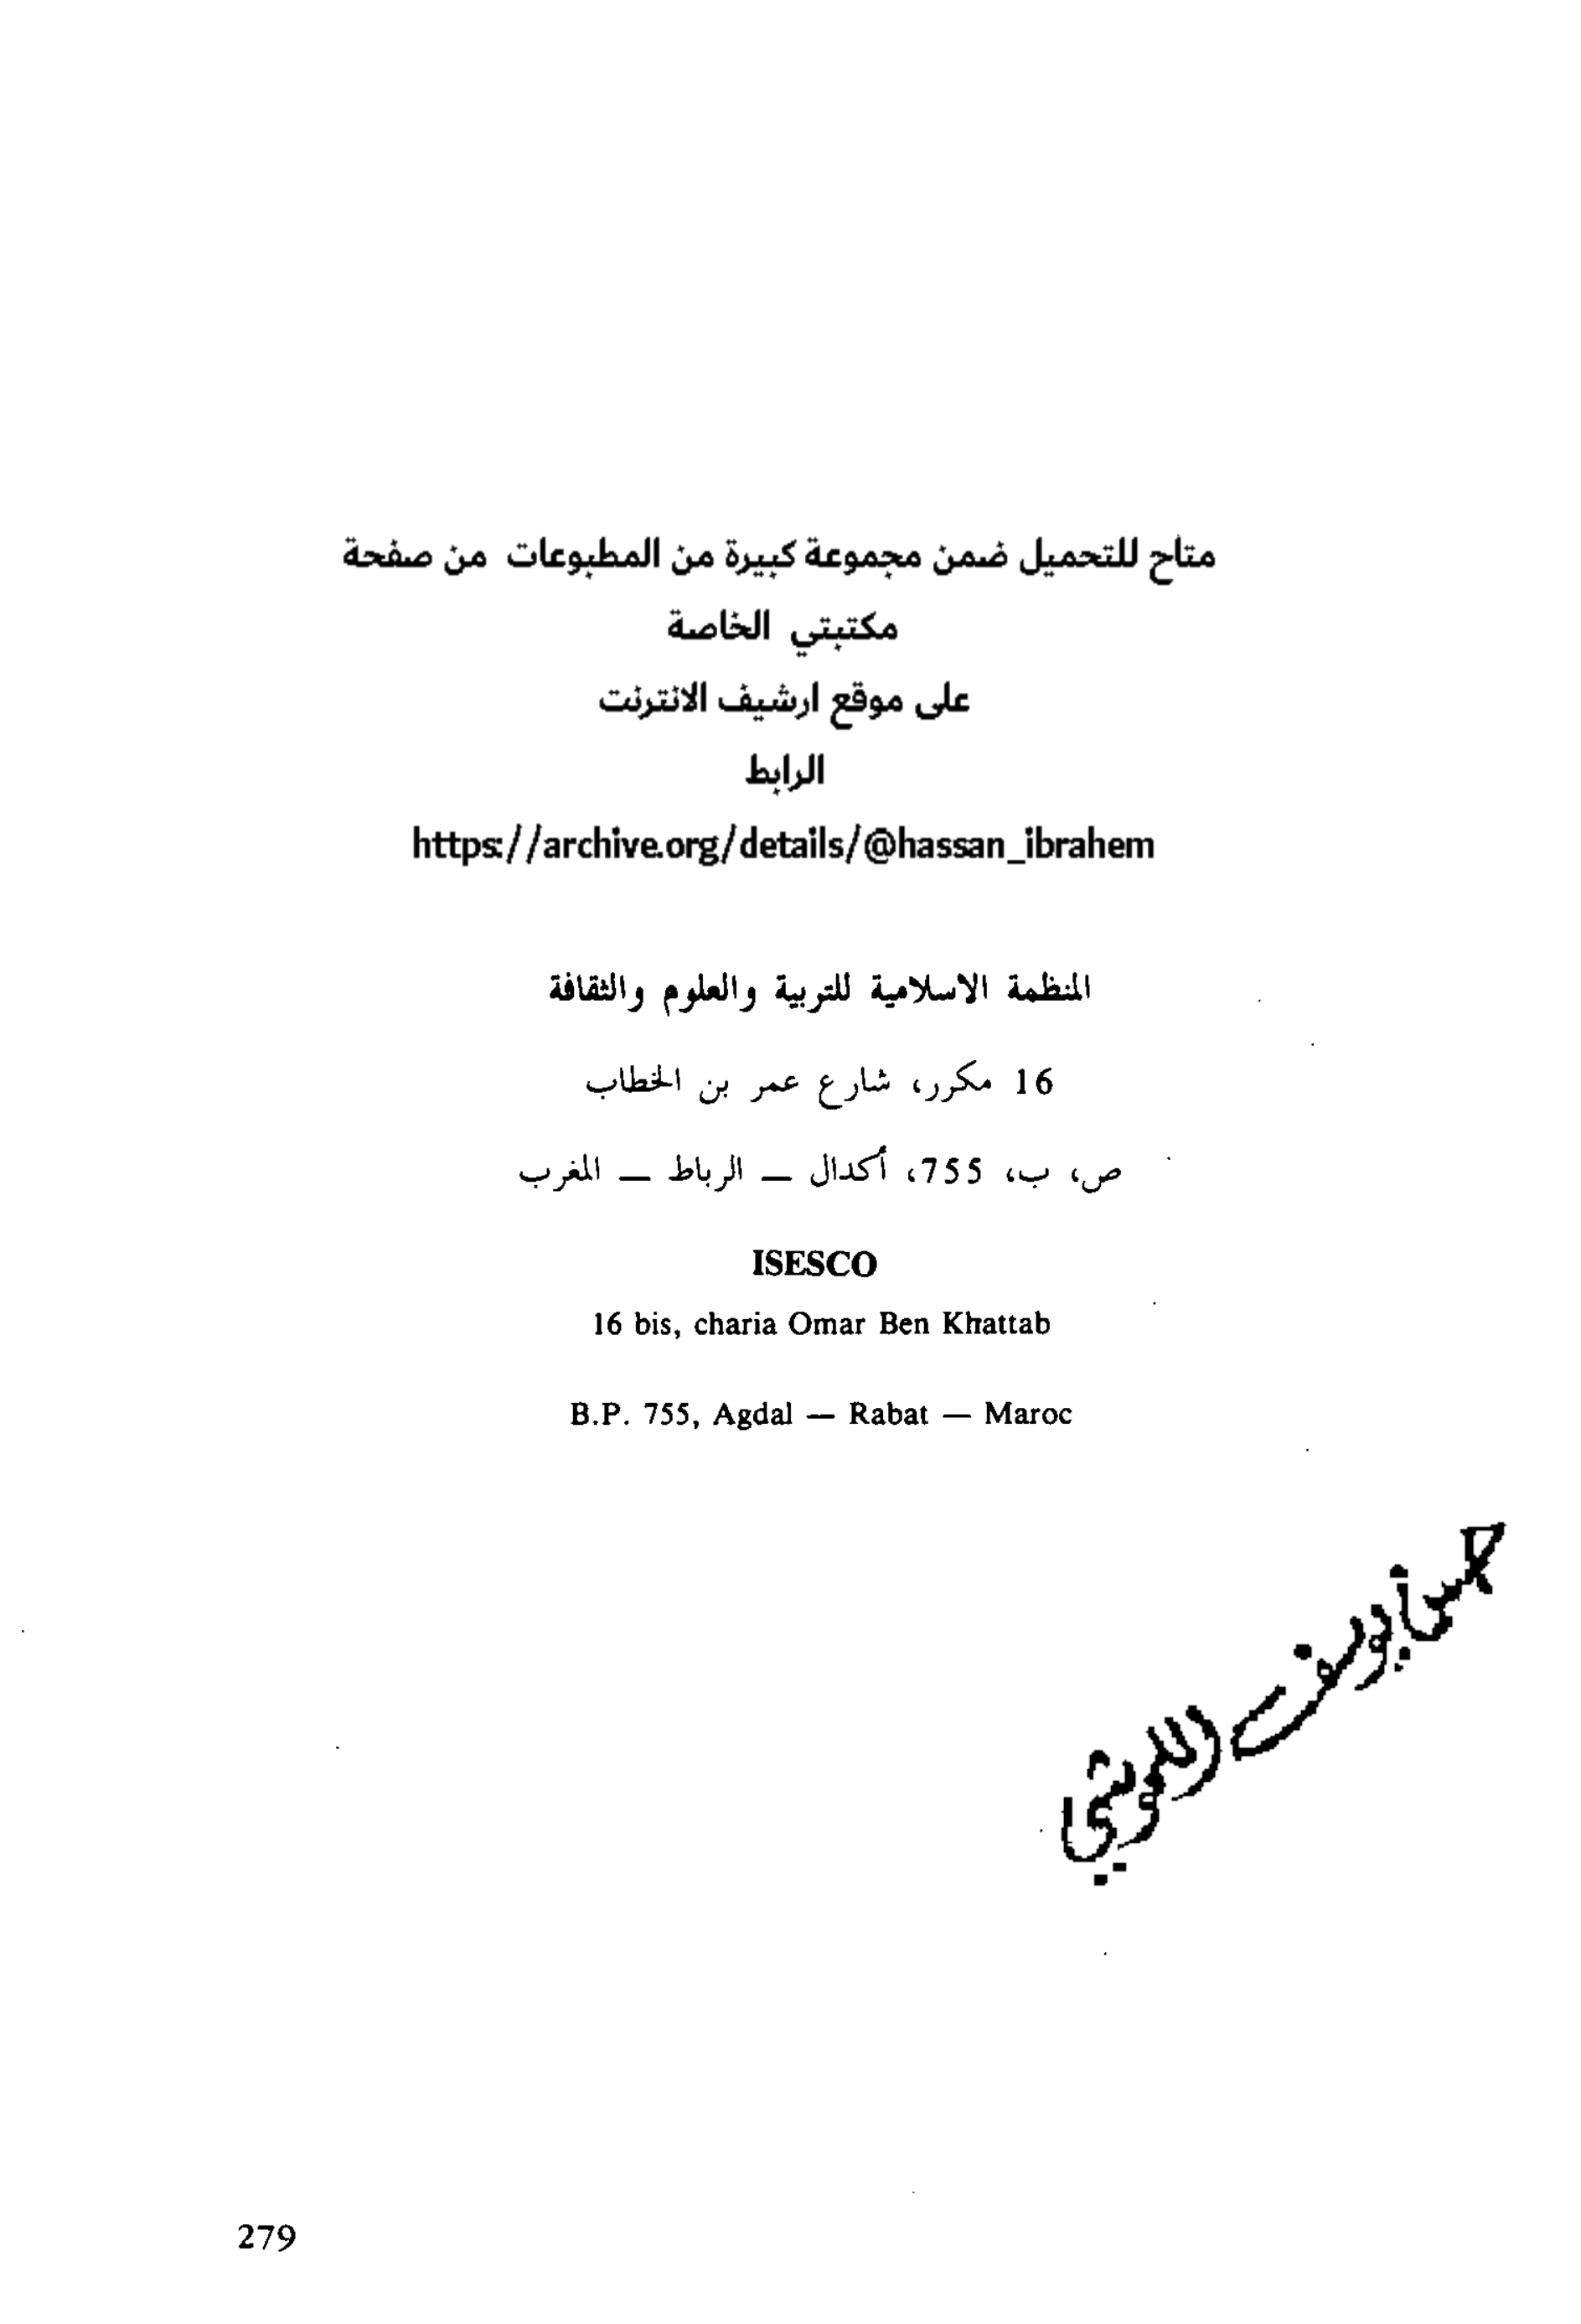 متاح للتحميل ضمن مجموعة كبيرة من المطبوعات من صفحة
مكتبتي الخاصة
على موقع ارشيف الانترنت
الرابط
https://archive.org/details/@hassan_ibrahem
المنظمة الاسلامية للتربية والعلوم والثقافة
16 مكرر، شارع عمر بن الخطاب
ص، ب، 755، أكدال — الرباط — المغرب
ISESCO
16 bis, charia Omar Ben Khattab
B.P. 755, Agdal — Rabat — Maroc
279